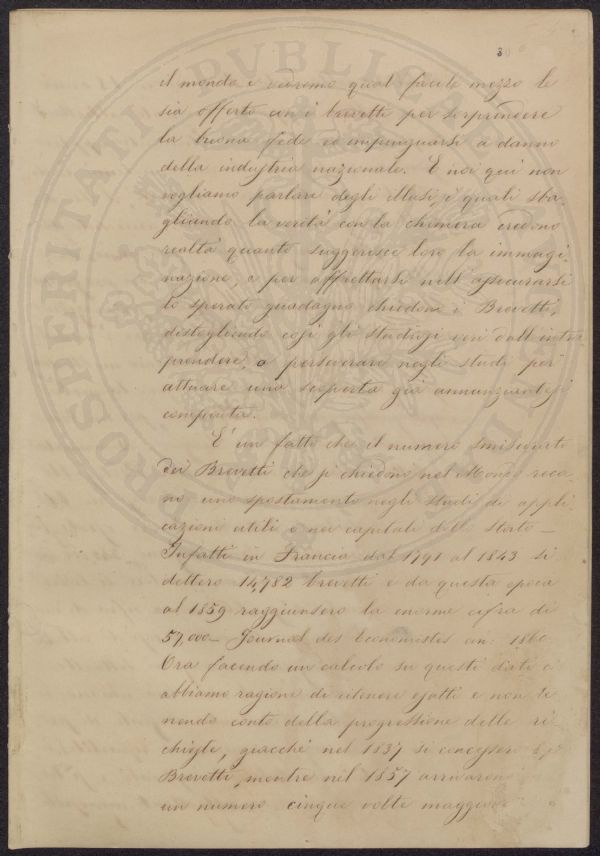 3
il mondo e vedremo qual facile mezzo le
sia offerto con i brevetti per sorprendere
la buona fede ed impinguarsi a danno
della industria nazionale. E noi qui non
vogliamo parlare degli illusi, i quali sba-
gliando la verità con la chimera credono
realtà quanto suggerisce loro la immagi-
nazione, e per affrettarsi nell'assicurarsi
lo sperato guadagno chiedono i Brevetti,
distogliendo così gli studiosi veri dall'intra-
prendere, o perseverare negli studi per
attuare una scoperta già annunziantesi
compiuta.
È un fatto che il numero smisurato
dei Brevetti che si chiedono nel Mondo reca-
no uno spostamento negli studi di appli-
cazioni utili e nei capitali dello Stato —
Infatti in Francia dal 1791 al 1843 si
dettero 14,782 brevetti e da questa epoca
al 1859 raggiunsero la enorme cifra di
57,000 — Journal des Economistes an: 1860
Ora facendo un calcolo su questi dati ci
abbiamo ragione di ritenere esatti e non te-
nendo conto della progressione delle ri-
chieste, giacché nel 1837 si concessero
Brevetti, mentre nel 1857 arrivarono
un numero cinque volte maggiore
PROSPERITATI PVBLICAE